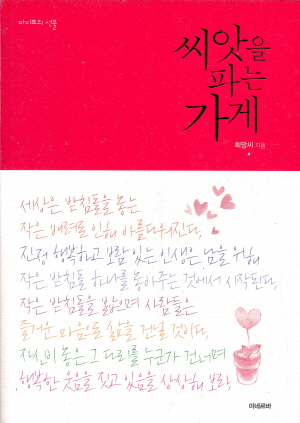 마이트리 선물
씨앗을
파는
가게
희망씨 지음
세상은 받침돌을 놓는
작은 배려로 인해 아름다워진다.
진정 행복하고 보람 있는 인생은 남을 위해
작은 받침돌 하나를 놓아주는 것에서 시작된다.
작은 받침돌을 밟으며 사람들은
즐거운 마음으로 삶을 건널 것이다.
자신이 놓은 그 다리를 누군가 건너며
행복한 웃음을 짓고 있음을 상상해 보라.
미네르바